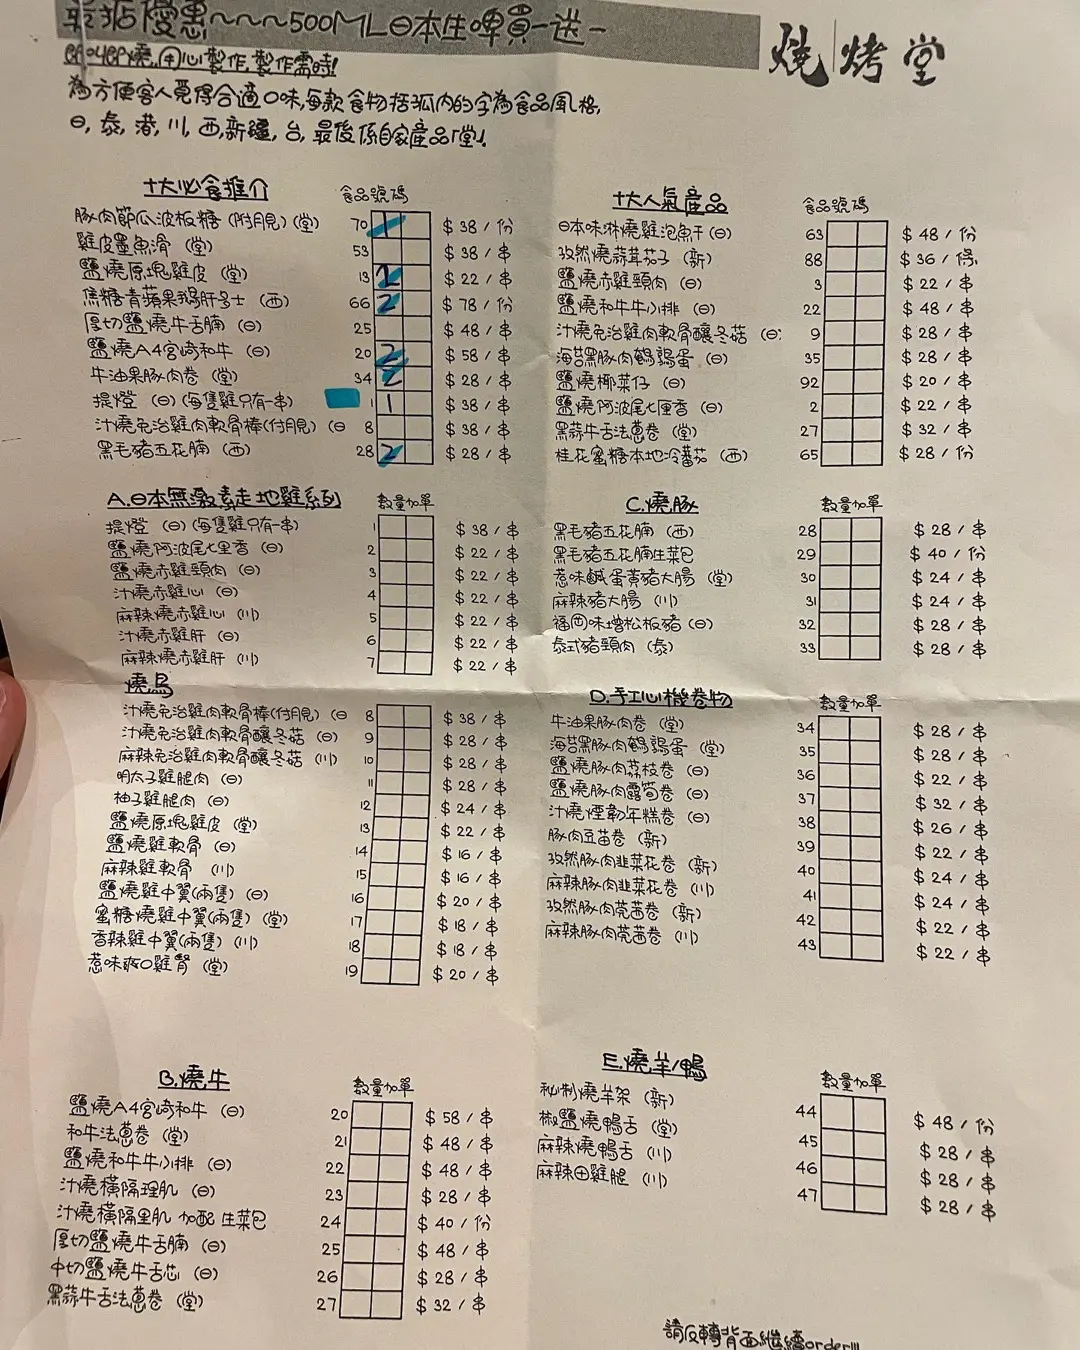 最抵優惠~~~500ML日本生啤買一送一
即叫即燒,用心製作,製作需時!
為方便客人覓得合適口味,每款食物括弧內的字為食品風格,
日,泰,港,川,西,新疆,台,最後係自家產品「堂」.
燒烤堂
十大必食推介 食品號碼
豚肉節瓜波板糖(附月見)(堂) 70 1 $38/份
雞皮墨魚滑(堂) 53 $38/串
鹽燒原塊雞皮(堂) 13 2 $22/串
焦糖青蘋果鵝肝多士(西) 66 2 $78/份
厚切鹽燒牛舌腩(日) 25 $48/串
鹽燒A4宮崎和牛(日) 20 2 $58/串
牛油果豚肉卷(堂) 34 2 $28/串
提燈(日)(每隻雞只有一串) 1 1 $38/串
汁燒免治雞肉軟骨棒(付月見)(日 8 $38/串
黑毛豬五花腩(西) 28 2 $28/串
十大人氣產品 食品號碼
日本味淋燒雞泡魚干(日) 63 $48/份
孜然燒蒜茸茄子(新) 88 $36/份
鹽燒赤雞頸肉(日) 3 $22/串
鹽燒和牛牛小排(日) 22 $48/串
汁燒免治雞肉軟骨釀冬菇(日) 9 $28/串
海苔黑豚肉鵪鶉蛋(日) 35 $28/串
鹽燒椰菜仔(日) 92 $20/串
鹽燒阿波尾七里香(日) 2 $22/串
黑蒜牛舌法蔥卷(堂) 27 $32/串
桂花蜜糖本地冷蕃茄(西) 65 $28/份
A.日本無激素走地雞系列 數量加單
提燈(日)(每隻雞只有一串) 1 $38/串
鹽燒阿波尾七里香(日) 2 $22/串
鹽燒赤雞頸肉(日) 3 $22/串
汁燒赤雞心(日) 4 $22/串
麻辣燒赤雞心(川) 5 $22/串
汁燒赤雞肝(日) 6 $22/串
麻辣燒赤雞肝(川) 7 $22/串
燒鳥
汁燒免治雞肉軟骨棒(付月見)(日 8 $38/串
汁燒免治雞肉軟骨釀冬菇(日) 9 $28/串
麻辣免治雞肉軟骨釀冬菇(川) 10 $28/串
明太子雞腿肉(日) 11 $28/串
柚子雞腿肉(日) 12 $24/串
鹽燒原塊雞皮(堂) 13 $22/串
鹽燒雞軟骨(日) 14 $16/串
麻辣雞軟骨(川) 15 $16/串
鹽燒雞中翼(兩隻)(日) 16 $20/串
蜜糖燒雞中翼(兩隻)(堂) 17 $18/串
香辣雞中翼(兩隻)(川) 18 $18/串
惹味爽口雞腎(堂) 19 $20/串
C.燒豚 數量加單
黑毛豬五花腩(西) 28 $28/串
黑毛豬五花腩生菜包 29 $40/份
惹味鹹蛋黃豬大腸(堂) 30 $24/串
麻辣豬大腸(川) 31 $24/串
福岡味增松板豬(日) 32 $28/串
泰式豬頸肉(泰) 33 $28/串
D.手工心機卷物 數量加單
牛油果豚肉卷(堂) 34 $28/串
海苔黑豚肉鵪鶉蛋(堂) 35 $28/串
鹽燒豚肉荔枝卷(日) 36 $22/串
鹽燒豚肉露筍卷(日) 37 $32/串
汁燒煙韌年糕卷(日) 38 $26/串
豚肉豆苗卷(新) 39 $22/串
孜然豚肉韭菜花卷(新) 40 $24/串
麻辣豚肉韭菜花卷(川) 41 $24/串
孜然豚肉芫茜卷(新) 42 $22/串
麻辣豚肉芫茜卷(川) 43 $22/串
B.燒牛 數量加單
鹽燒A4宮崎和牛(日) 20 $58/串
和牛法蔥卷(堂) 21 $48/串
鹽燒和牛牛小排(日) 22 $48/串
汁燒橫隔理肌(日) 23 $28/串
汁燒橫隔里肌 加配 生菜包 24 $40/份
厚切鹽燒牛舌腩(日) 25 $48/串
中切鹽燒牛舌芯(日) 26 $28/串
黑蒜牛舌法蔥卷(堂) 27 $32/串
E.燒羊/鴨 數量加單
秘制燒羊架(新) 44 $48/份
椒鹽燒鴨舌(堂) 45 $28/串
麻辣燒鴨舌(川) 46 $28/串
麻辣田雞腿(川) 47 $28/串
請反轉背面繼續order!!!